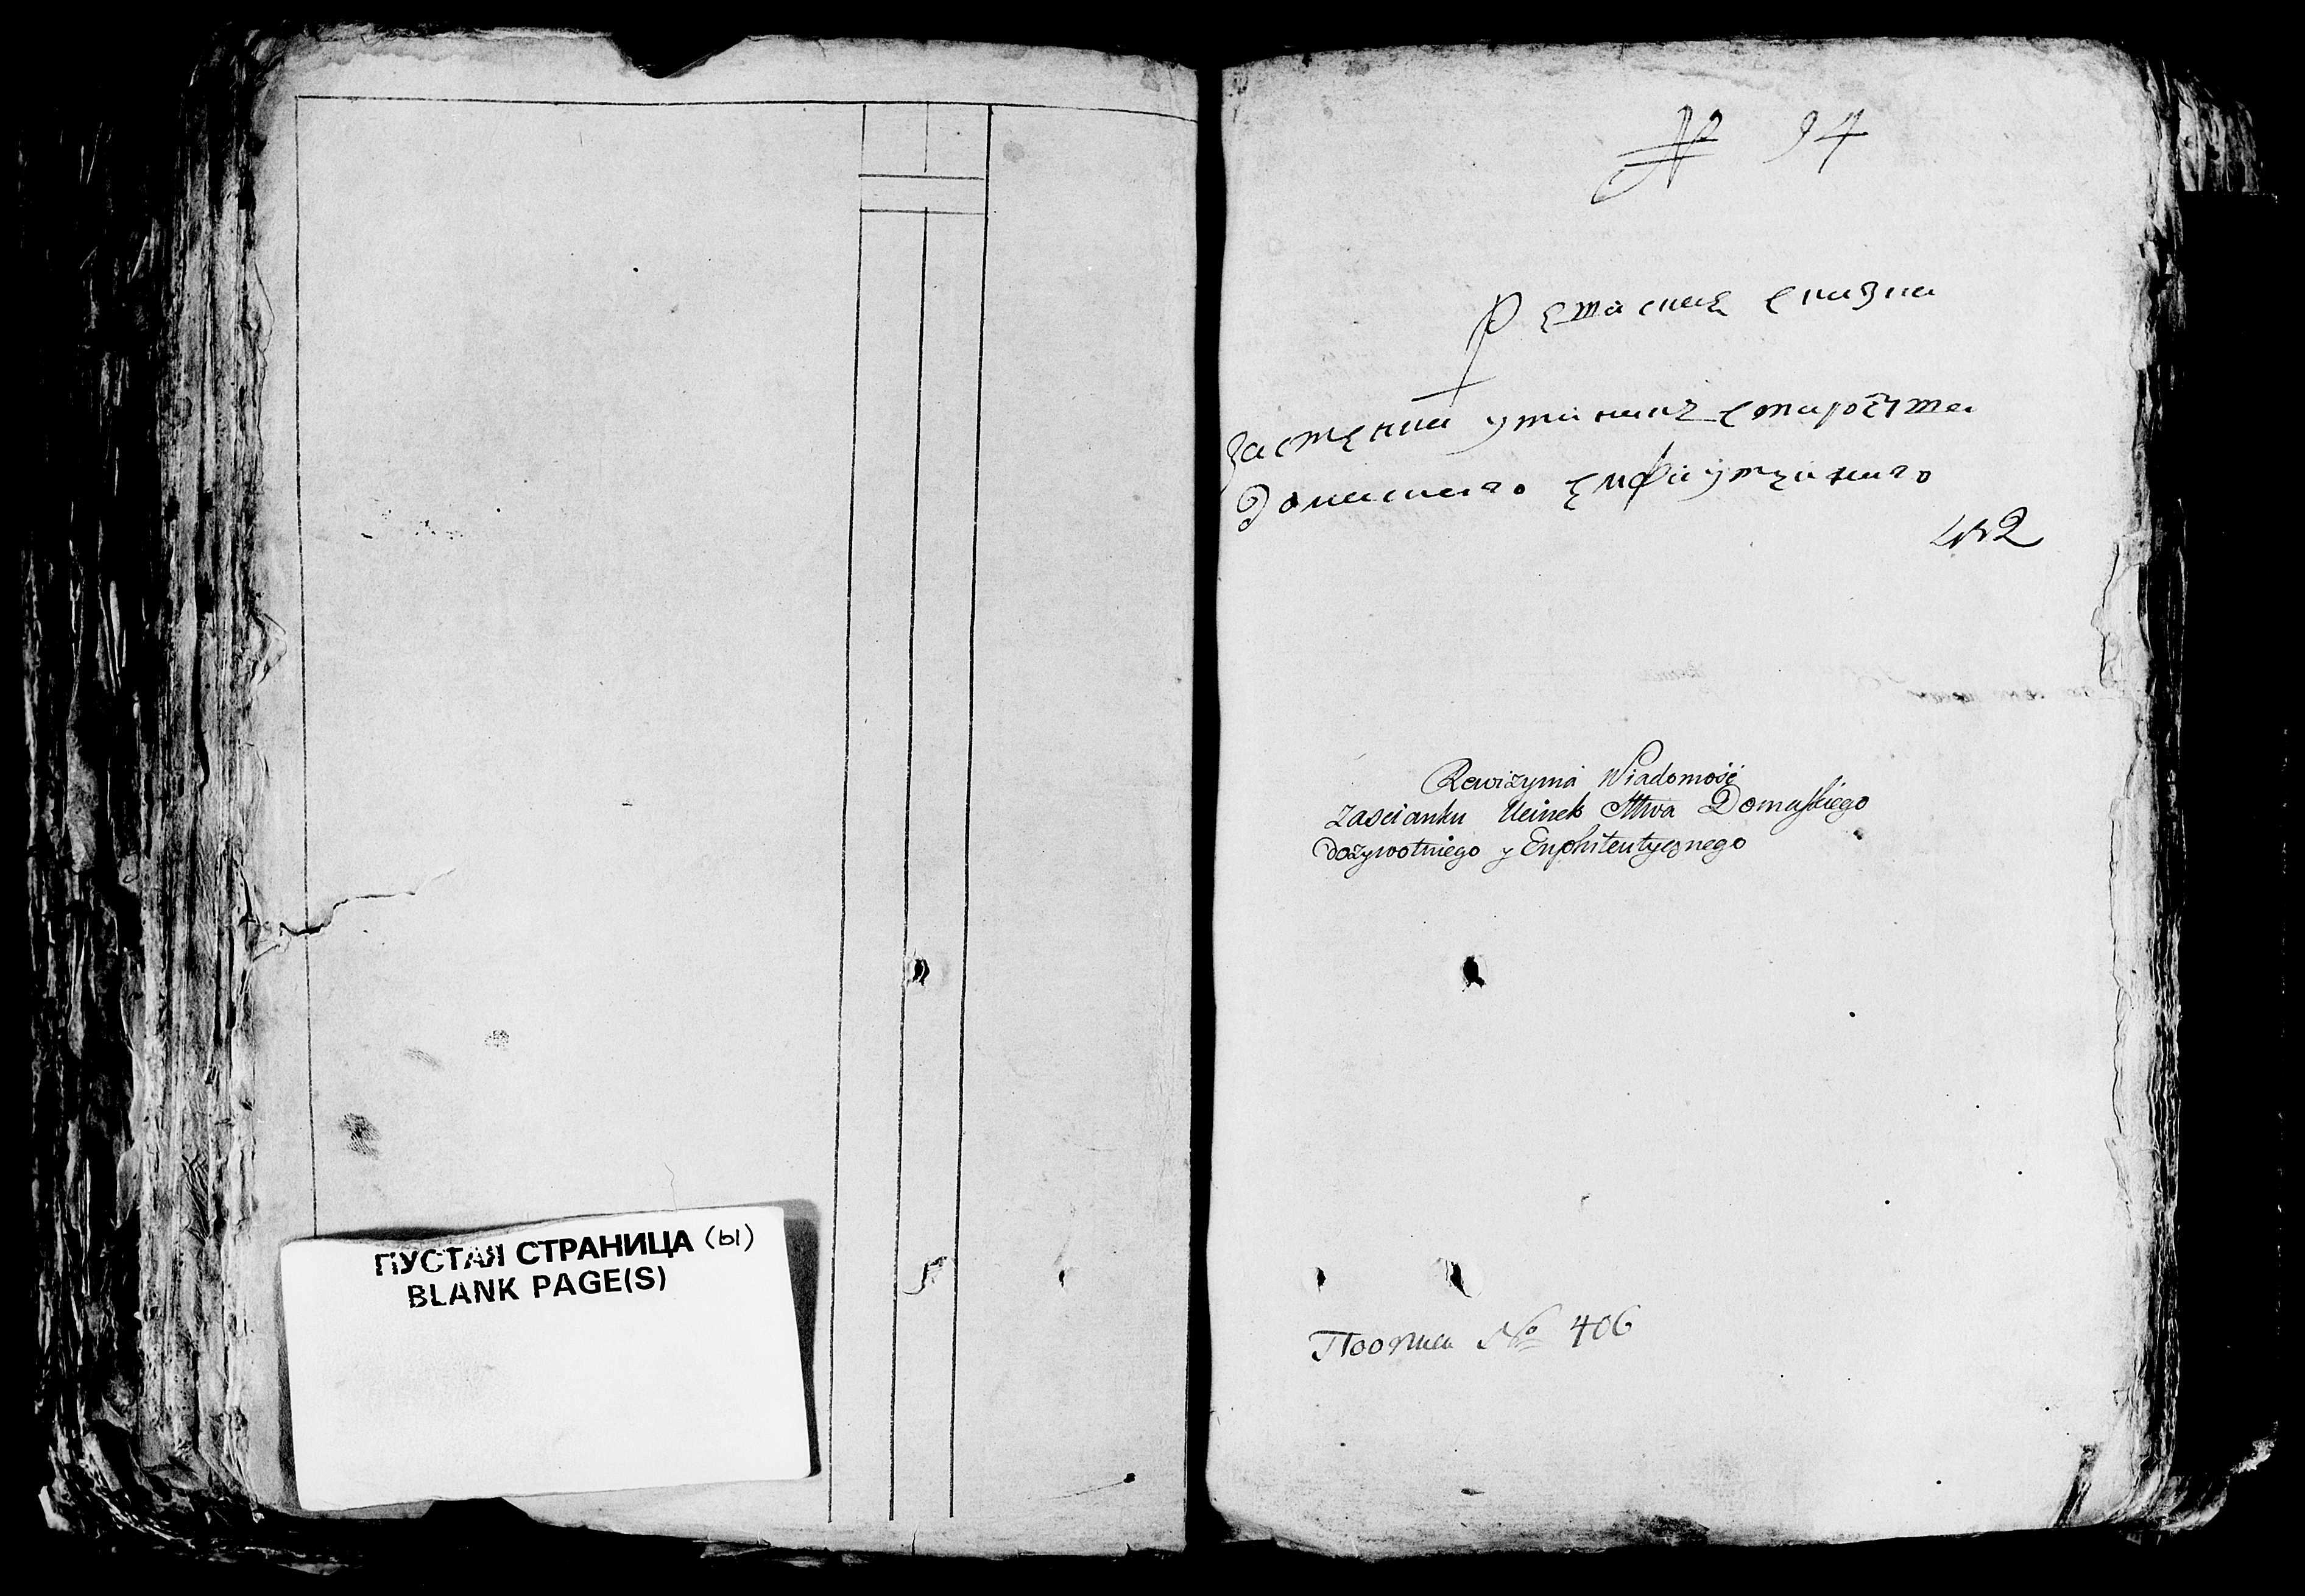 ПУСТАЯ СТРАНИЦА (ы)
BLANK PAGE(S)
№ 94
Ревиская сказка
Застенка староства
Домаского емфиутезнаго
Rewizyina Wiadomość
zascianku Ucinek Sttwa Domaskiego
dożywotniego y Enphiteutycznego
№ 406